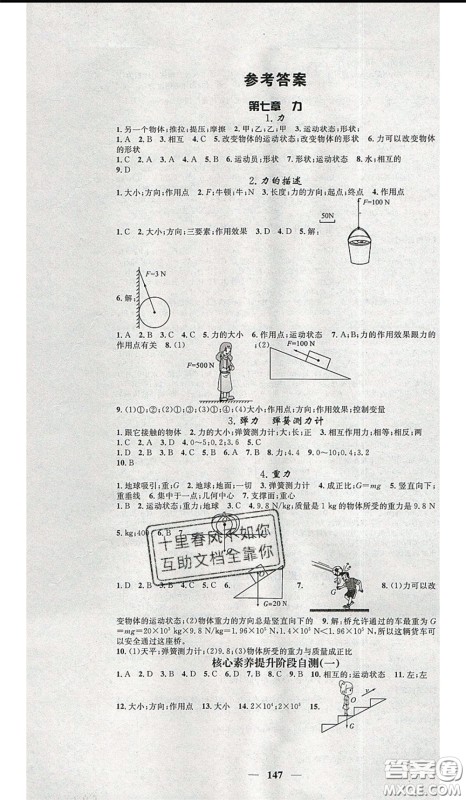 参考答案
第七章 力
1.力
1.另一个物体;推拉;提压;摩擦 2.甲;乙;乙;甲 3.运动状态;形状;
1.A 2.B 3.相互 4.C 5.改变物体的运动状态;改变物体的形状 6.力可以改变物体
的形状
1.C 2.D 3.A 4.C 5.C 6.运动员;足球 7.运动状态;形状 8.水;相互的
9.D
2.力的描述
1.大小;方向;作用点 2.F;牛顿;牛;N 3.长度;力的方向;起点;终点 4.作用点
F=100 N
50N
1.C 2.大小;方向;三要素;作用效果 3.D 4.D 5.解:
F=3 N
6.解:
1.A 2.B 3.C 4.C 5.力的大小 6.作用点;运动状态 7.A;B;力的作用效果跟力的
作用点有关 8.(1) ;(2)
F=100 N
F=500 N
9.(1)①;②(2)①;③(3)①;④(4)大小;作用点;方向;作用效果;控制变量
3.弹力 弹簧测力计
1.跟它接触的物体 2.大小;弹簧测力计;大;长;正 3.相互作用力;相互;相互;相反
1.A 2.D 3.A 4.0~5;0.2;3.6 5.D 6.D 7.B 8.力;4.4 9.0~10;0.4;3.2
10.B
4.重力
1.地球吸引;重;G 2.地球;地面;一切 3.弹簧测力计 4.成正比;G=mg 5.竖直向下;
重垂线 6.集中于一点;几何中心 7.支撑面;重心
1.B 2.运动状态;重力;地球 3.C 4.质量是 1 kg 的物体所受的重力是 9.8 N
5.kg;400 6.B 7.
十里春风不如你
互助文档全靠你
G=20 N
G
1.D 2.D 3.B 4.C 8.(1)力可以改
变物体的运动状态;(2)物体重力的方向总是竖直向下的 9.解:桥允许通过的车的最大重力
10.(1)天平;弹簧测力计;(2)成正比;(3)物体所受的重力与质量成正比
核心素养提升阶段自测(一)
1.A 2.D 3.D 4.A 5.A 6.C 7.B 8.D 9.B 10.相互的;运动状态 11.左;左
12.大小;方向;作用点 13.大小 14.2×10⁴;2×10³ 15.
147
答案圈
MXQE.COM